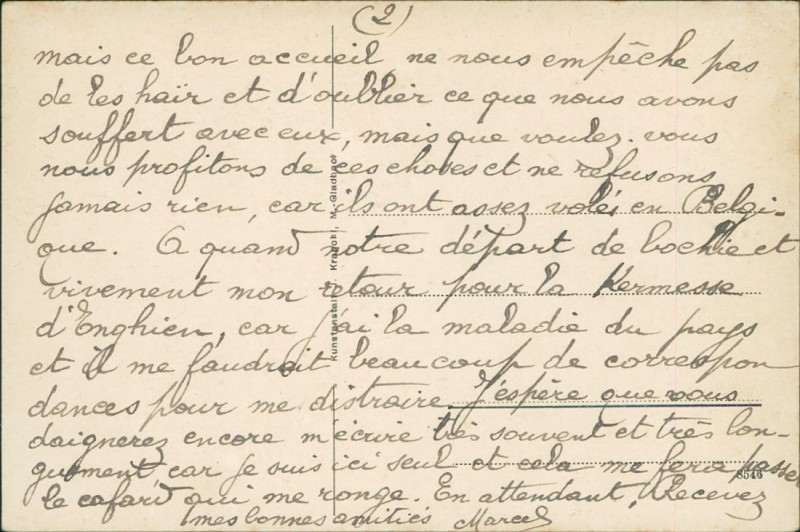 (2)
mais ce bon accueil ne nous empêche pas
de les haïr et d'oublier ce que nous avons
souffert avec eux, mais que voulez-vous
nous profitons de ces choses et ne refusons
jamais rien, car ils ont assez volés en Belgi-
que. A quand notre départ de bochie et
vivement mon retour pour la Kermesse
d'Enghien, car j'ai la maladie du pays
et il me faudrait beaucoup de correspon
dances pour me distraire. J'espère que vous
daignerez encore m'écrire très souvent et très lon-
guement car je suis ici seul et cela me fera passer
le cafard qui me ronge. En attendant, Recevez
mes bonnes amitiés Marcel
Kunstanstalt Krapohl, M.-Gladbach
8546